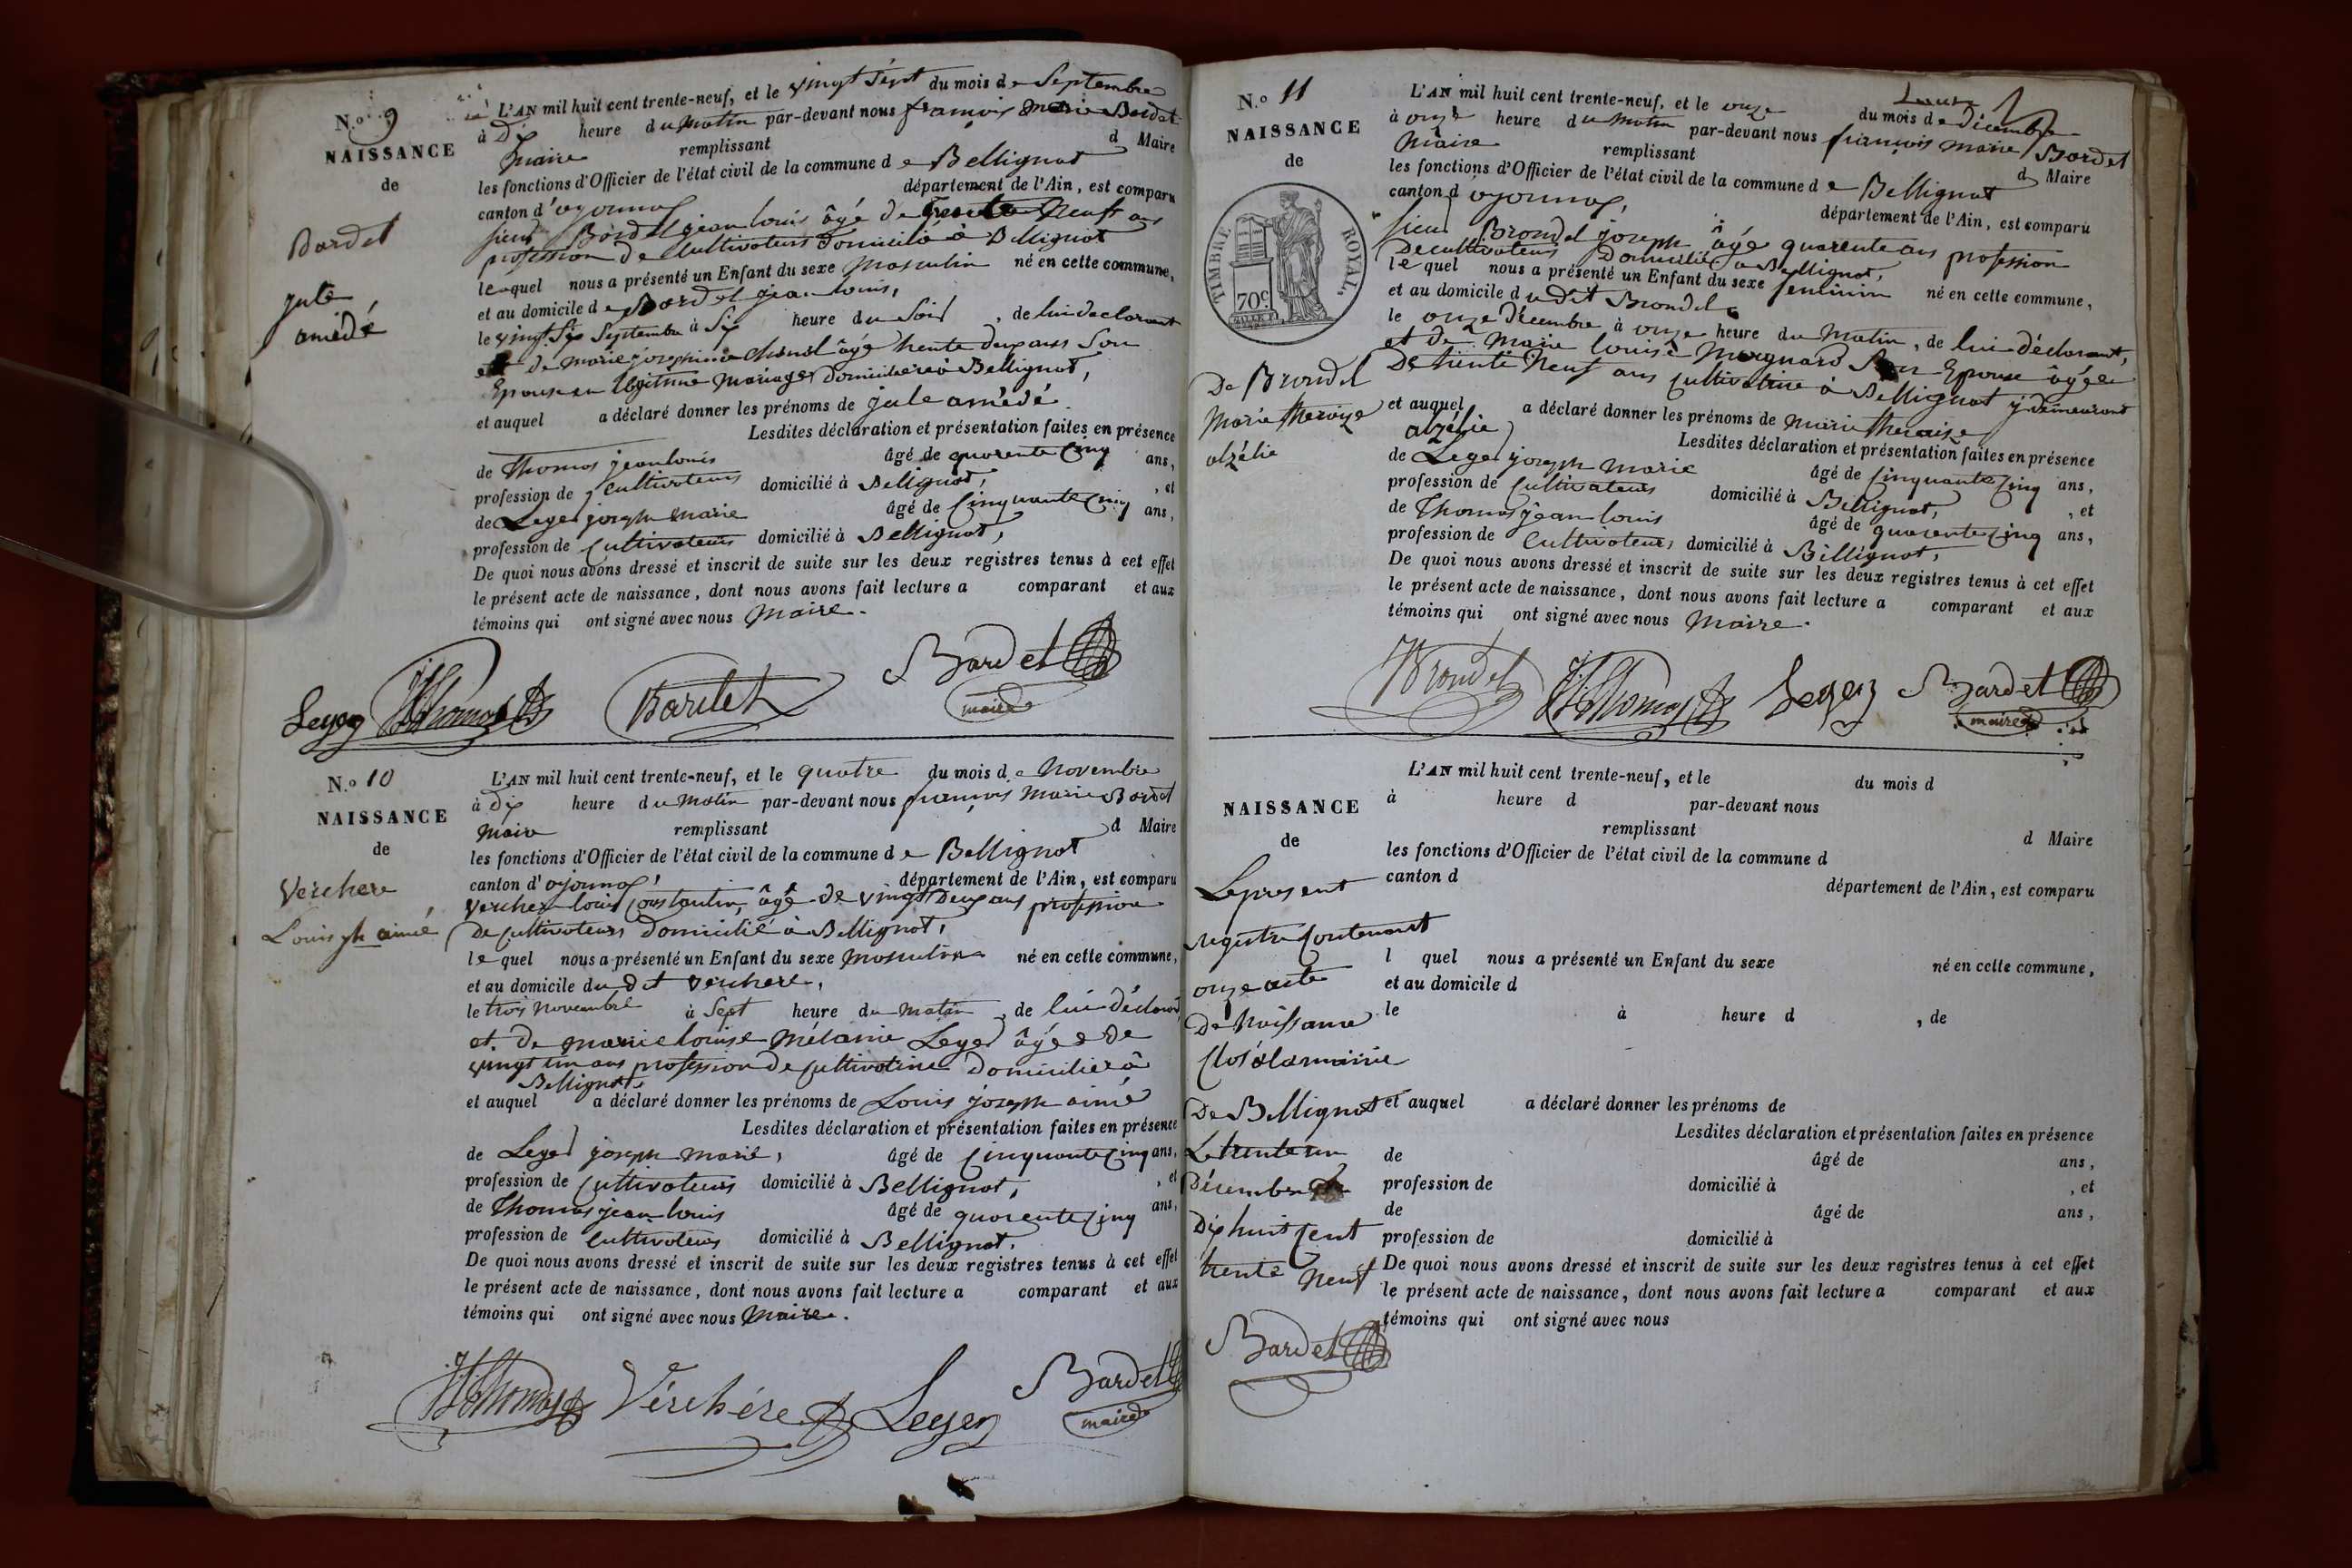 N.o 9
NAISSANCE
de
Bardet
jule
amédé
L'AN mil huit cent trente-neuf, et le vingt sept du mois de Septembre
à Dix heure du Matin par-devant nous françois Marie Bardet
Maire remplissant d Maire
les fonctions d'Officier de l'état civil de la commune de Bellignat
canton d'oyonnax département de l'Ain, est comparu
sieur Bardet jean louis âgé de trente Neuf ans
profession de Cultivateur Domicilié à Bellignat
lequel nous a présenté un Enfant du sexe Masculin né en cette commune,
et au domicile de Bardet jean louis,
le vingt Six Septembre à Six heure du Soir, de lui declarant
et de marie josephine âgé trente deux ans Son
Epouse en légitime Mariage domiciliée à Bellignat,
et auquel a déclaré donner les prénoms de jule amédé
Lesdites déclaration et présentation faites en présence
de Thomas jean louis âgé de quarente Cinq ans,
profession de Cultivateurs domicilié à Bellignat, , et
de Leger joseph marie âgé de Cinquante Cinq ans,
profession de Cultivateurs domicilié à Bellignat,
De quoi nous avons dressé et inscrit de suite sur les deux registres tenus à cet effet
le présent acte de naissance, dont nous avons fait lecture a comparant et aux
témoins qui ont signé avec nous Maire.
Leger Thomas Bardet Bardet
maire
N.o 10
NAISSANCE
de
Verchere
Louis jh aimé
L'AN mil huit cent trente-neuf, et le quatre du mois de Novembre
à dix heure du Matin par-devant nous françois Marie Bardet
Maire remplissant d Maire
les fonctions d'Officier de l'état civil de la commune de Bellignat
canton d'oyonnax, département de l'Ain, est comparu
Verchere louis Constantin, âgé de vingt Deux ans profession
De Cultivateurs Domicilié à Bellignat,
lequel nous a présenté un Enfant du sexe Masculin né en cette commune,
et au domicile du dit Verchere,
le trois Novembre à Sept heure du Matin, de lui déclarant
et de marie louise Mélanie Leger âgée de
vingt un ans profession de Cultivatrice domiciliée à
Bellignat,
et auquel a déclaré donner les prénoms de Louis joseph aimé
Lesdites déclaration et présentation faites en présence
de Leger joseph marie, âgé de Cinquante Cinq ans,
profession de Cultivateurs domicilié à Bellignat, , et
de Thomas jean louis âgé de quarente Cinq ans,
profession de Cultivateurs domicilié à Bellignat.
De quoi nous avons dressé et inscrit de suite sur les deux registres tenus à cet effet
le présent acte de naissance, dont nous avons fait lecture a comparant et aux
témoins qui ont signé avec nous Maire.
Thomas Vérchére Leger Bardet
maire
N.o 11
NAISSANCE
de
TIMBRE ROYAL
70c
De Brondel
Marie theraize
alzélie
L'AN mil huit cent trente-neuf, et le onze du mois de Décembre
à onze heure du Matin par-devant nous françois Marie Bardet
Maire remplissant d Maire
les fonctions d'Officier de l'état civil de la commune de Bellignat
canton d oyonnax, département de l'Ain, est comparu
sieur Brondel joseph âgé quarente ans profession
De cultivateurs Domicilié a Bellignat,
lequel nous a présenté un Enfant du sexe feminin né en cette commune,
et au domicile du dit Brondel
le onze Décembre à onze heure du Matin, de lui déclarant,
et de Marie louise Son Epouse âgée
De trente Neuf ans Cultivatrice à Bellignat y demeurant
et auquel a déclaré donner les prénoms de Marie theraise
alzélie
Lesdites déclaration et présentation faites en présence
de Leger joseph Marie âgé de Cinquante Cinq ans,
profession de Cultivateurs domicilié à Bellignat, , et
de Thomas jean louis âgé de quarente Cinq ans,
profession de Cultivateurs domicilié à Bellignat,
De quoi nous avons dressé et inscrit de suite sur les deux registres tenus à cet effet
le présent acte de naissance, dont nous avons fait lecture a comparant et aux
témoins qui ont signé avec nous Maire.
Brondel Thomas Leger Bardet
maire
NAISSANCE
de
Le present
registre Contenant
onze acte
De Naissance
Clos à la mairie
De Bellignat
Le trente un
Décembre
Dix huit Cent
trente Neuf
Bardet
L'AN mil huit cent trente-neuf, et le du mois d
à heure d par-devant nous
remplissant d Maire
les fonctions d'Officier de l'état civil de la commune d
canton d département de l'Ain, est comparu
l quel nous a présenté un Enfant du sexe né en cette commune,
et au domicile d
le à heure d , de
et auquel a déclaré donner les prénoms de
Lesdites déclaration et présentation faites en présence
de âgé de ans,
profession de domicilié à , et
de âgé de ans,
profession de domicilié à
De quoi nous avons dressé et inscrit de suite sur les deux registres tenus à cet effet
le présent acte de naissance, dont nous avons fait lecture a comparant et aux
témoins qui ont signé avec nous